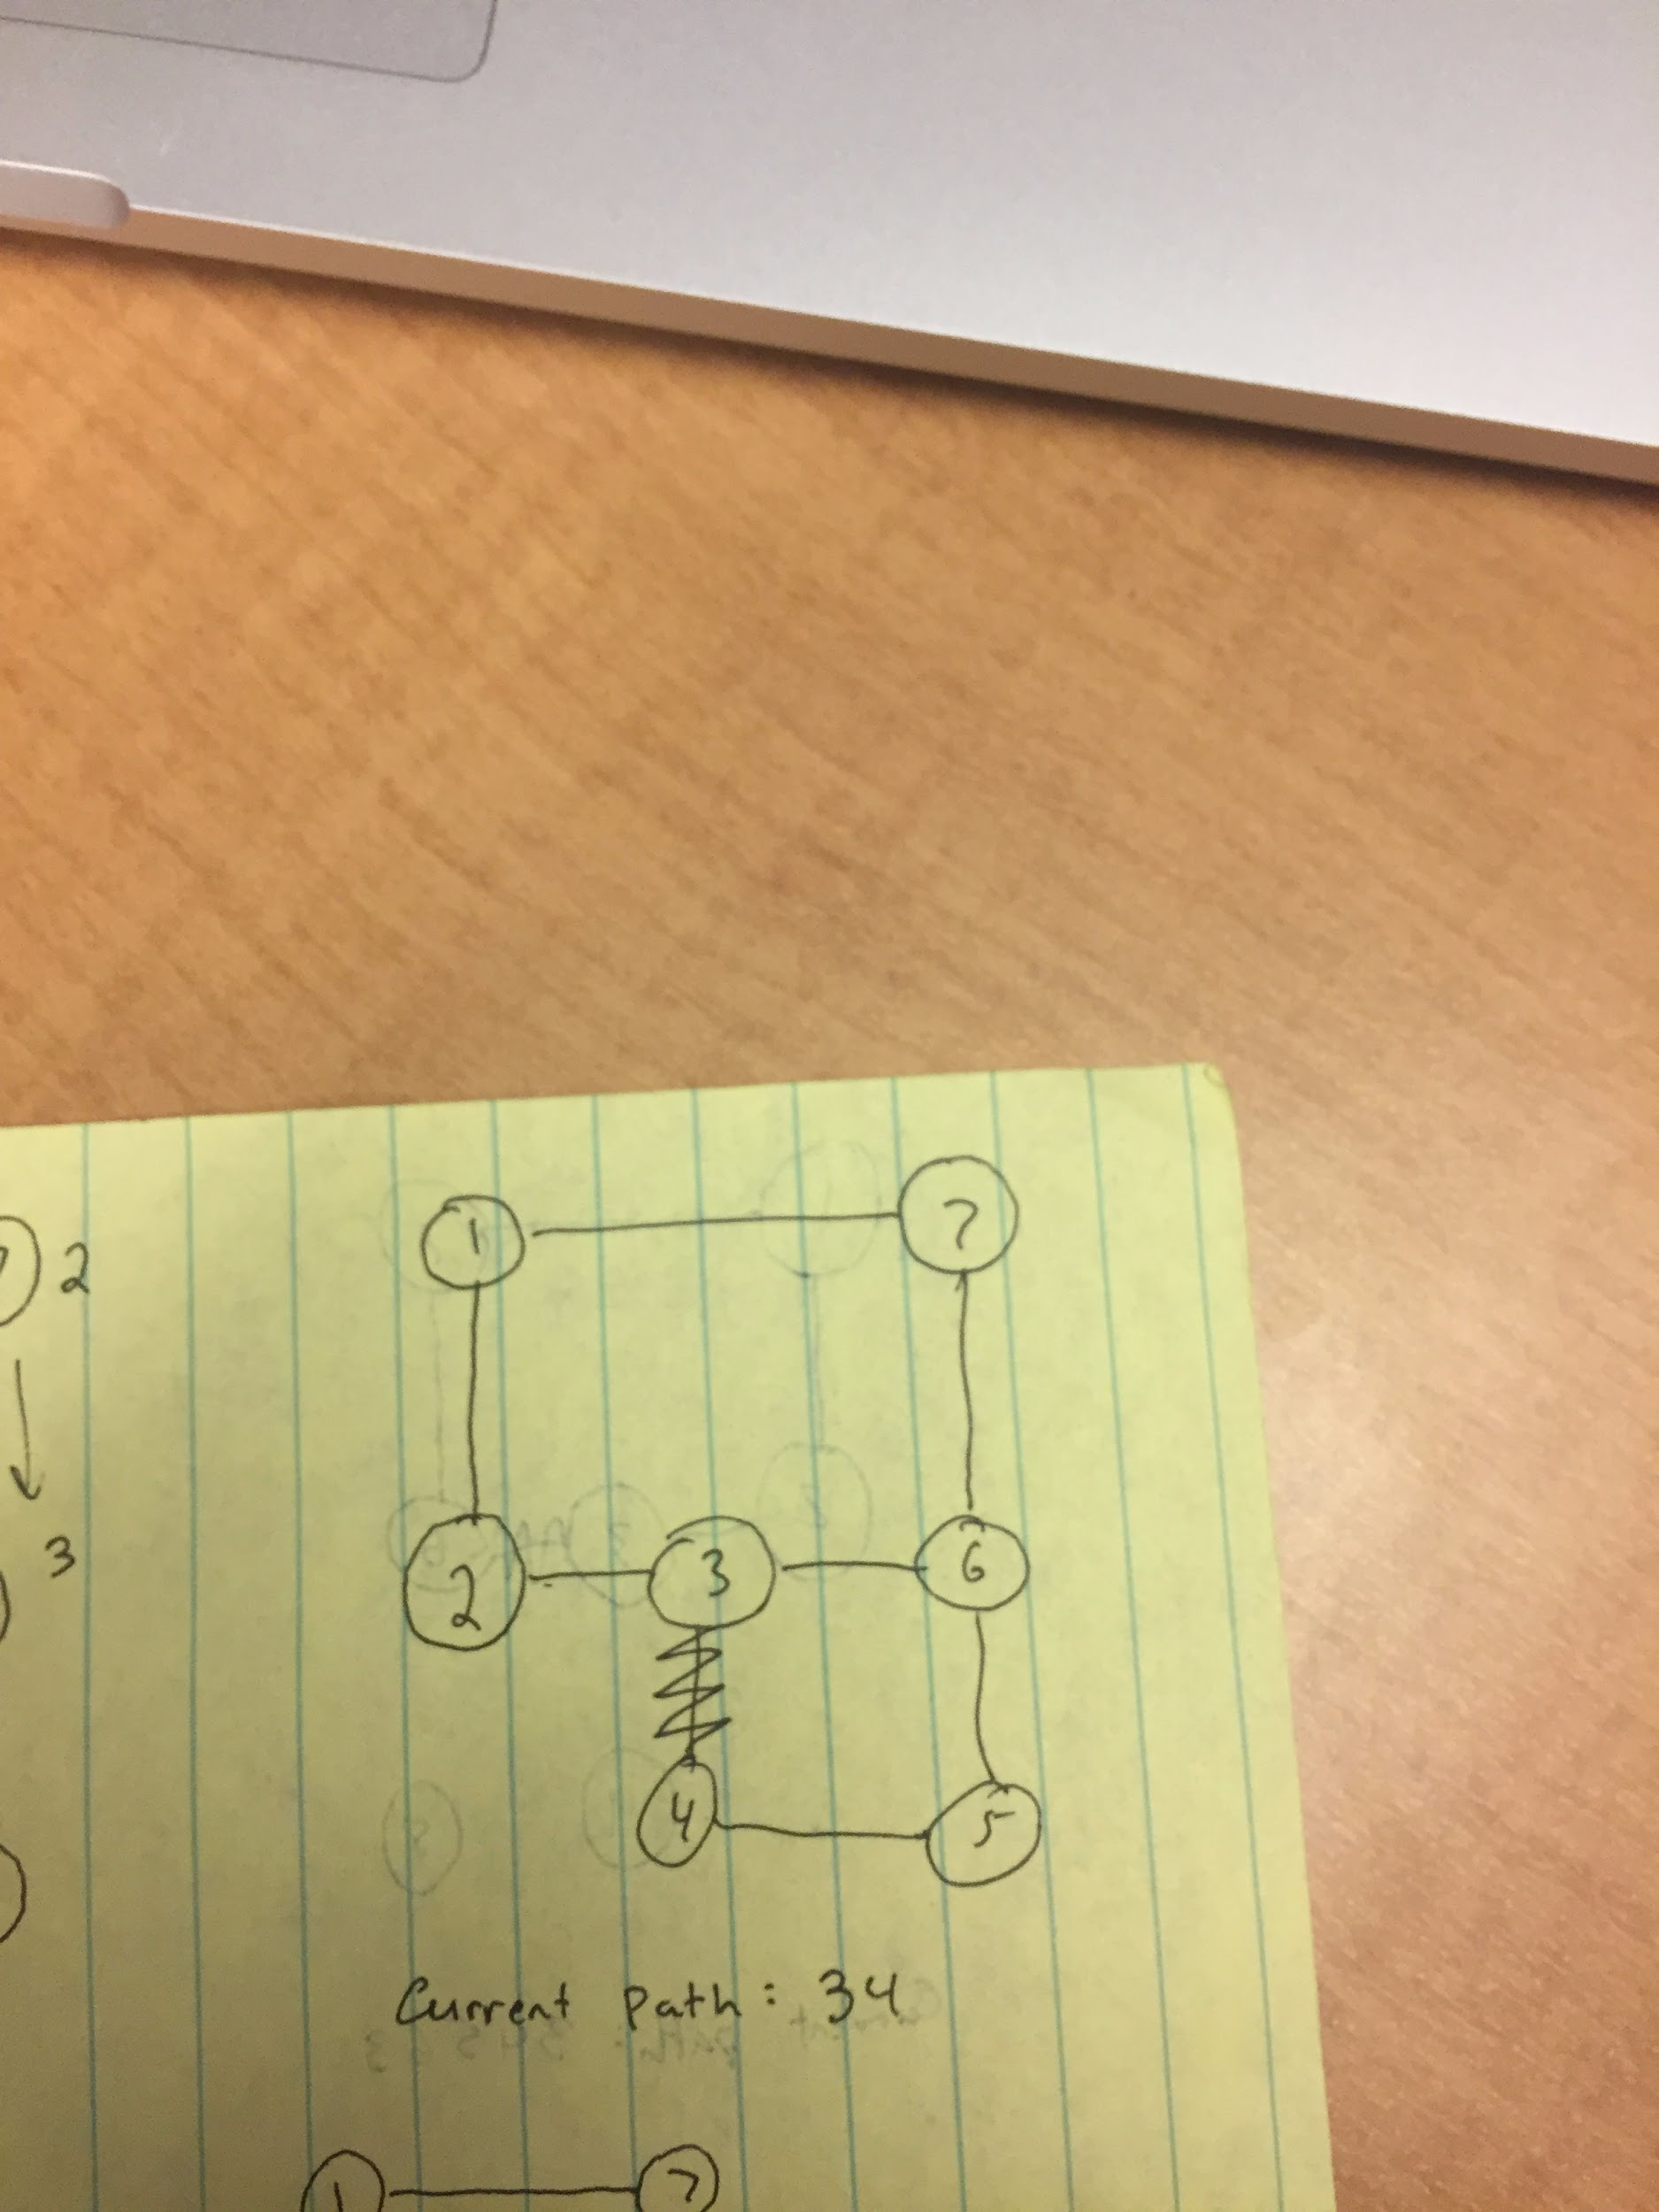 1 7
2
2 3 6
3
4 5
Current path: 34
1 7